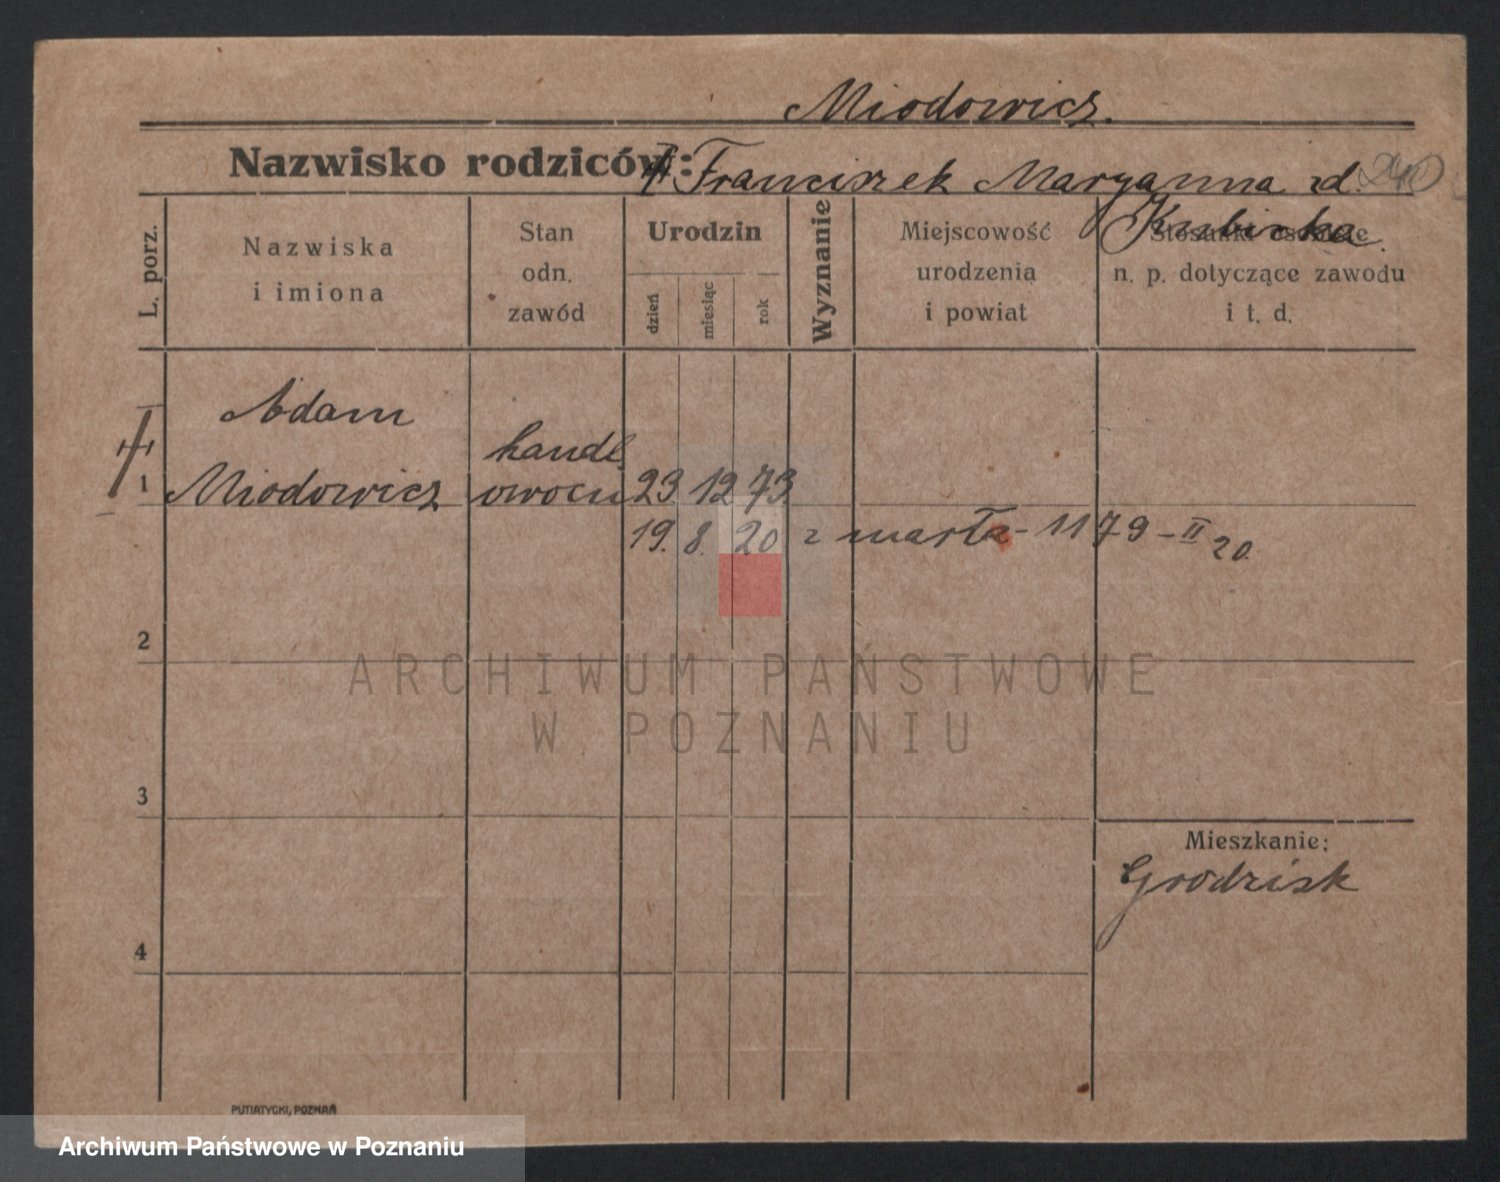 Miodowicz.
Nazwisko rodziców:
Franciszek Maryanna zd.
Kubicka.
L. porz.
Nazwiska
i imiona
Stan
odn.
zawód
Urodzin
dzień
miesiąc
rok
Wyznanie
Miejscowość
urodzenia
i powiat
Stosunki osobiste
n. p. dotyczące zawodu
i t. d.
Adam
handl.
1 Miodowicz owocu 23 12 73.
19. 8. 20 zmarła - 1179 - II 20.
2
ARCHIWUM PAŃSTWOWE
W POZNANIU
3
Mieszkanie:
Grodzisk
4
PUTIATYCKI, POZNAŃ
Archiwum Państwowe w Poznaniu